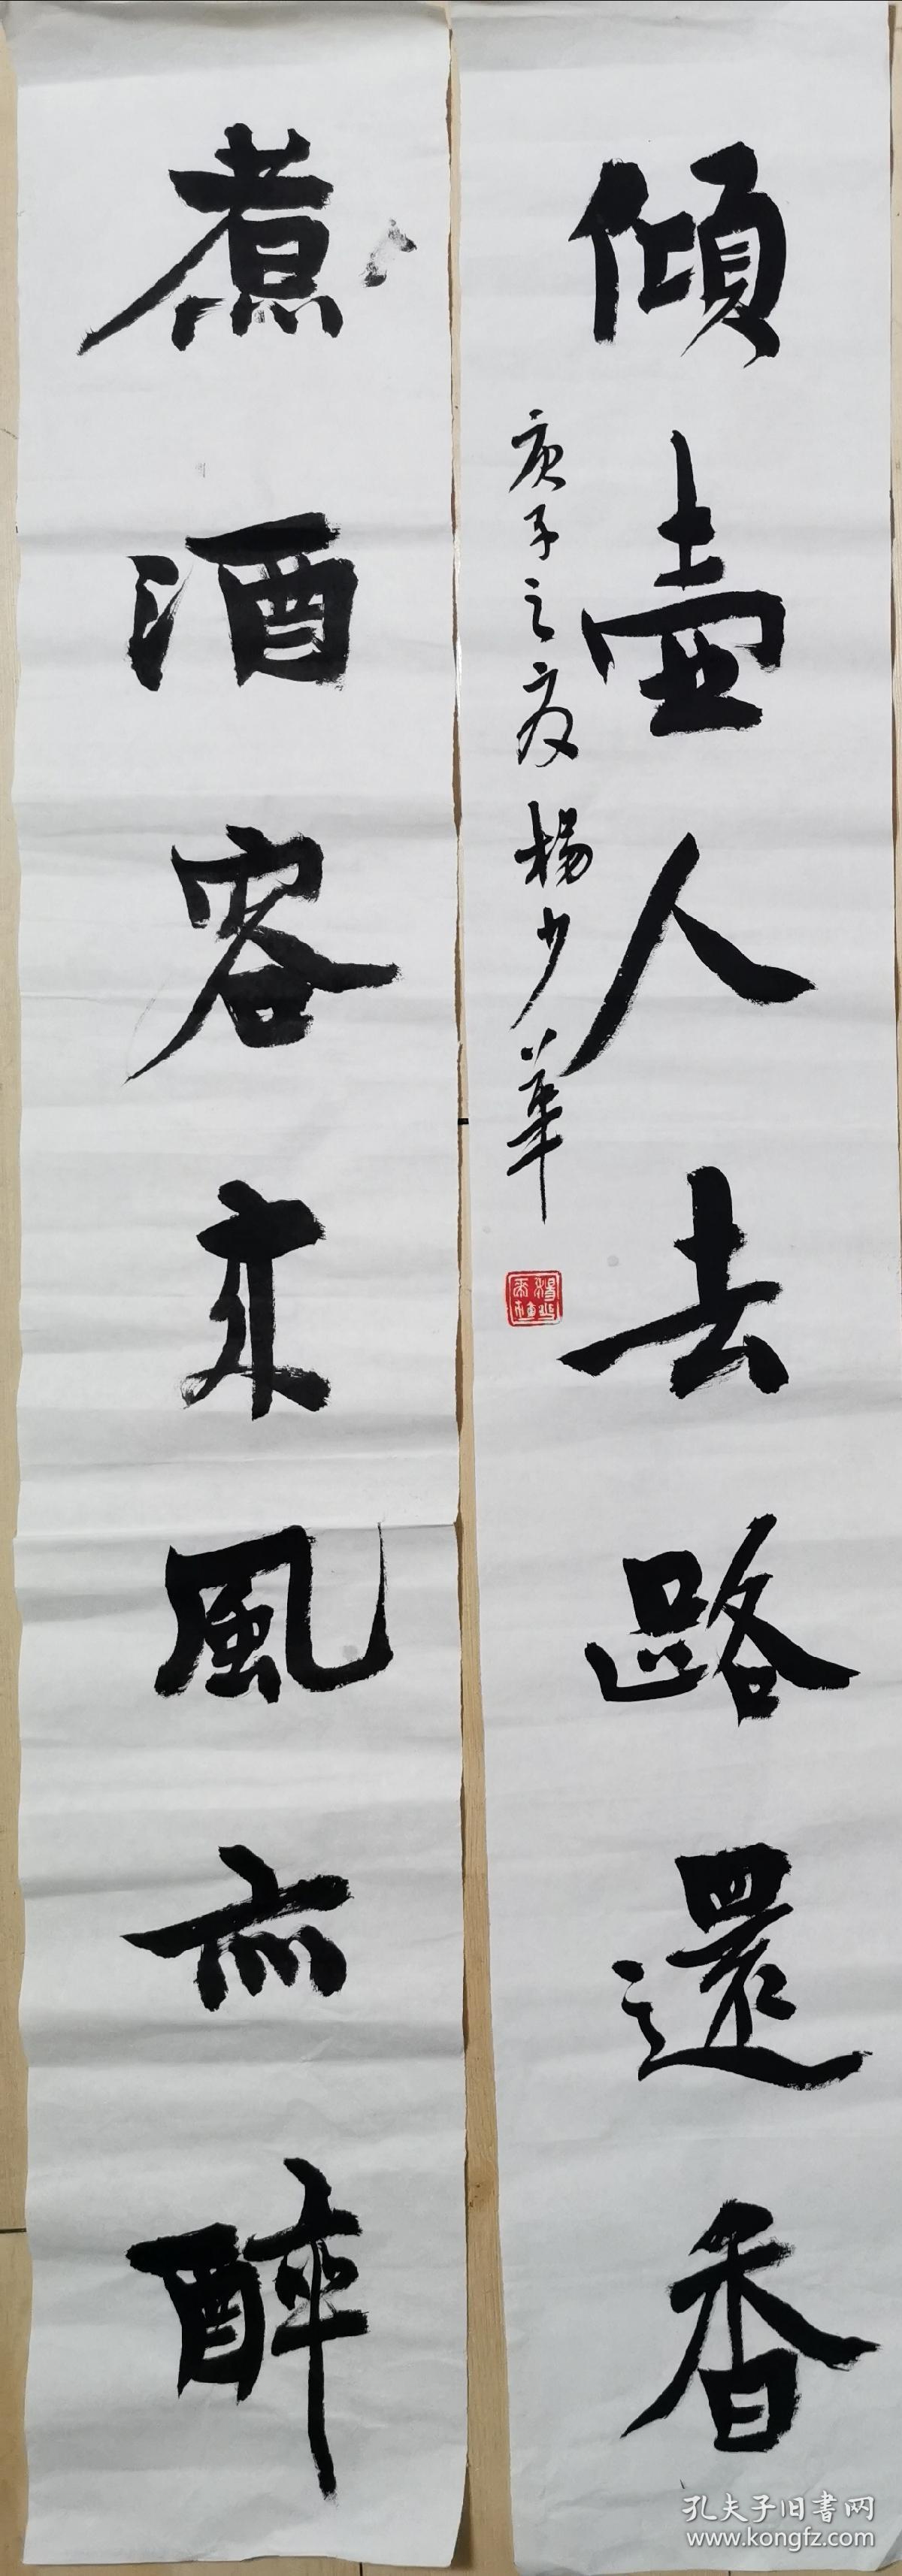 煮酒客來風亦醉
傾壺人去路還香
庚子之夏楊少華
孔夫子旧書网
www.kongfz.com